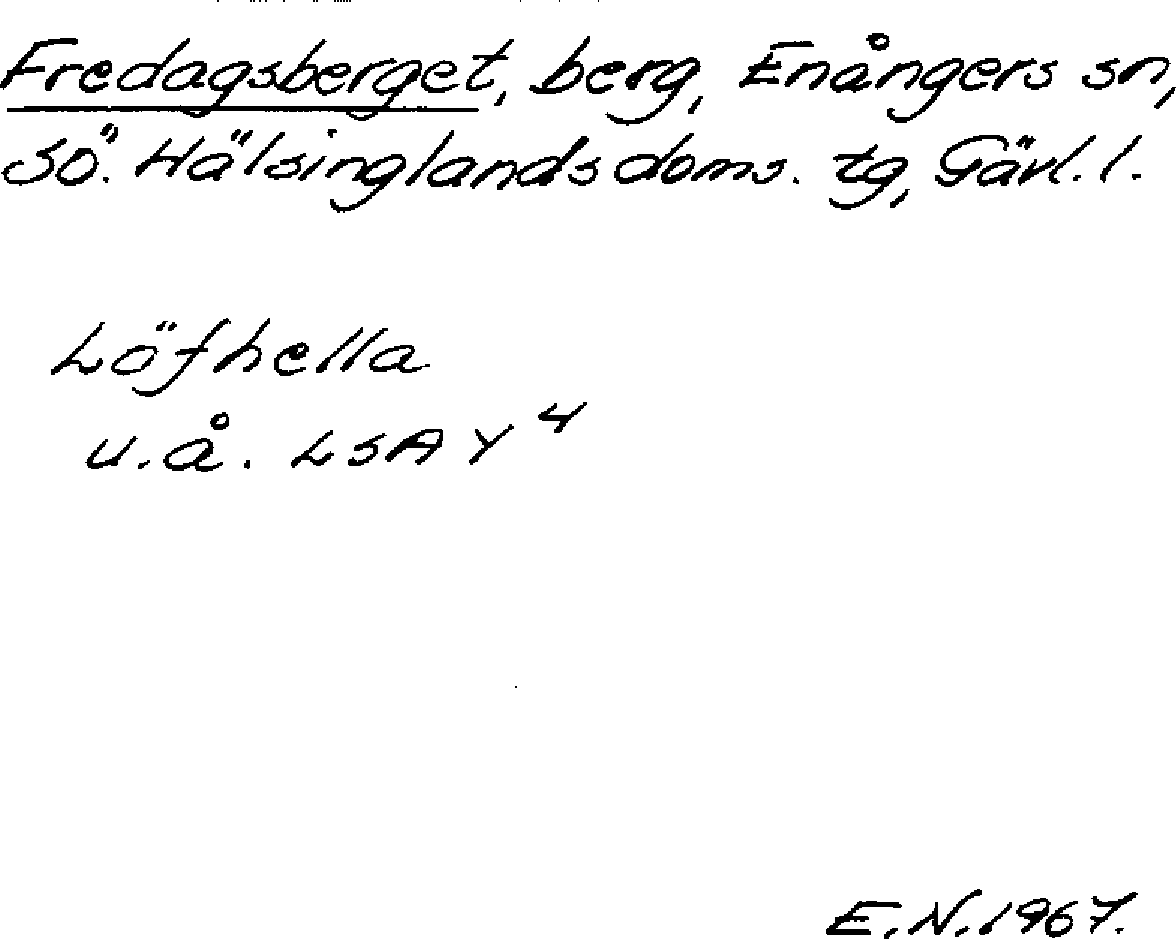 Fredagsberget, berg, Enångers sn,
Sö. Hälsinglands doms. tg, Gävl. l.
Löfhella
u.å. LSA Y⁴
E.N. 1967.